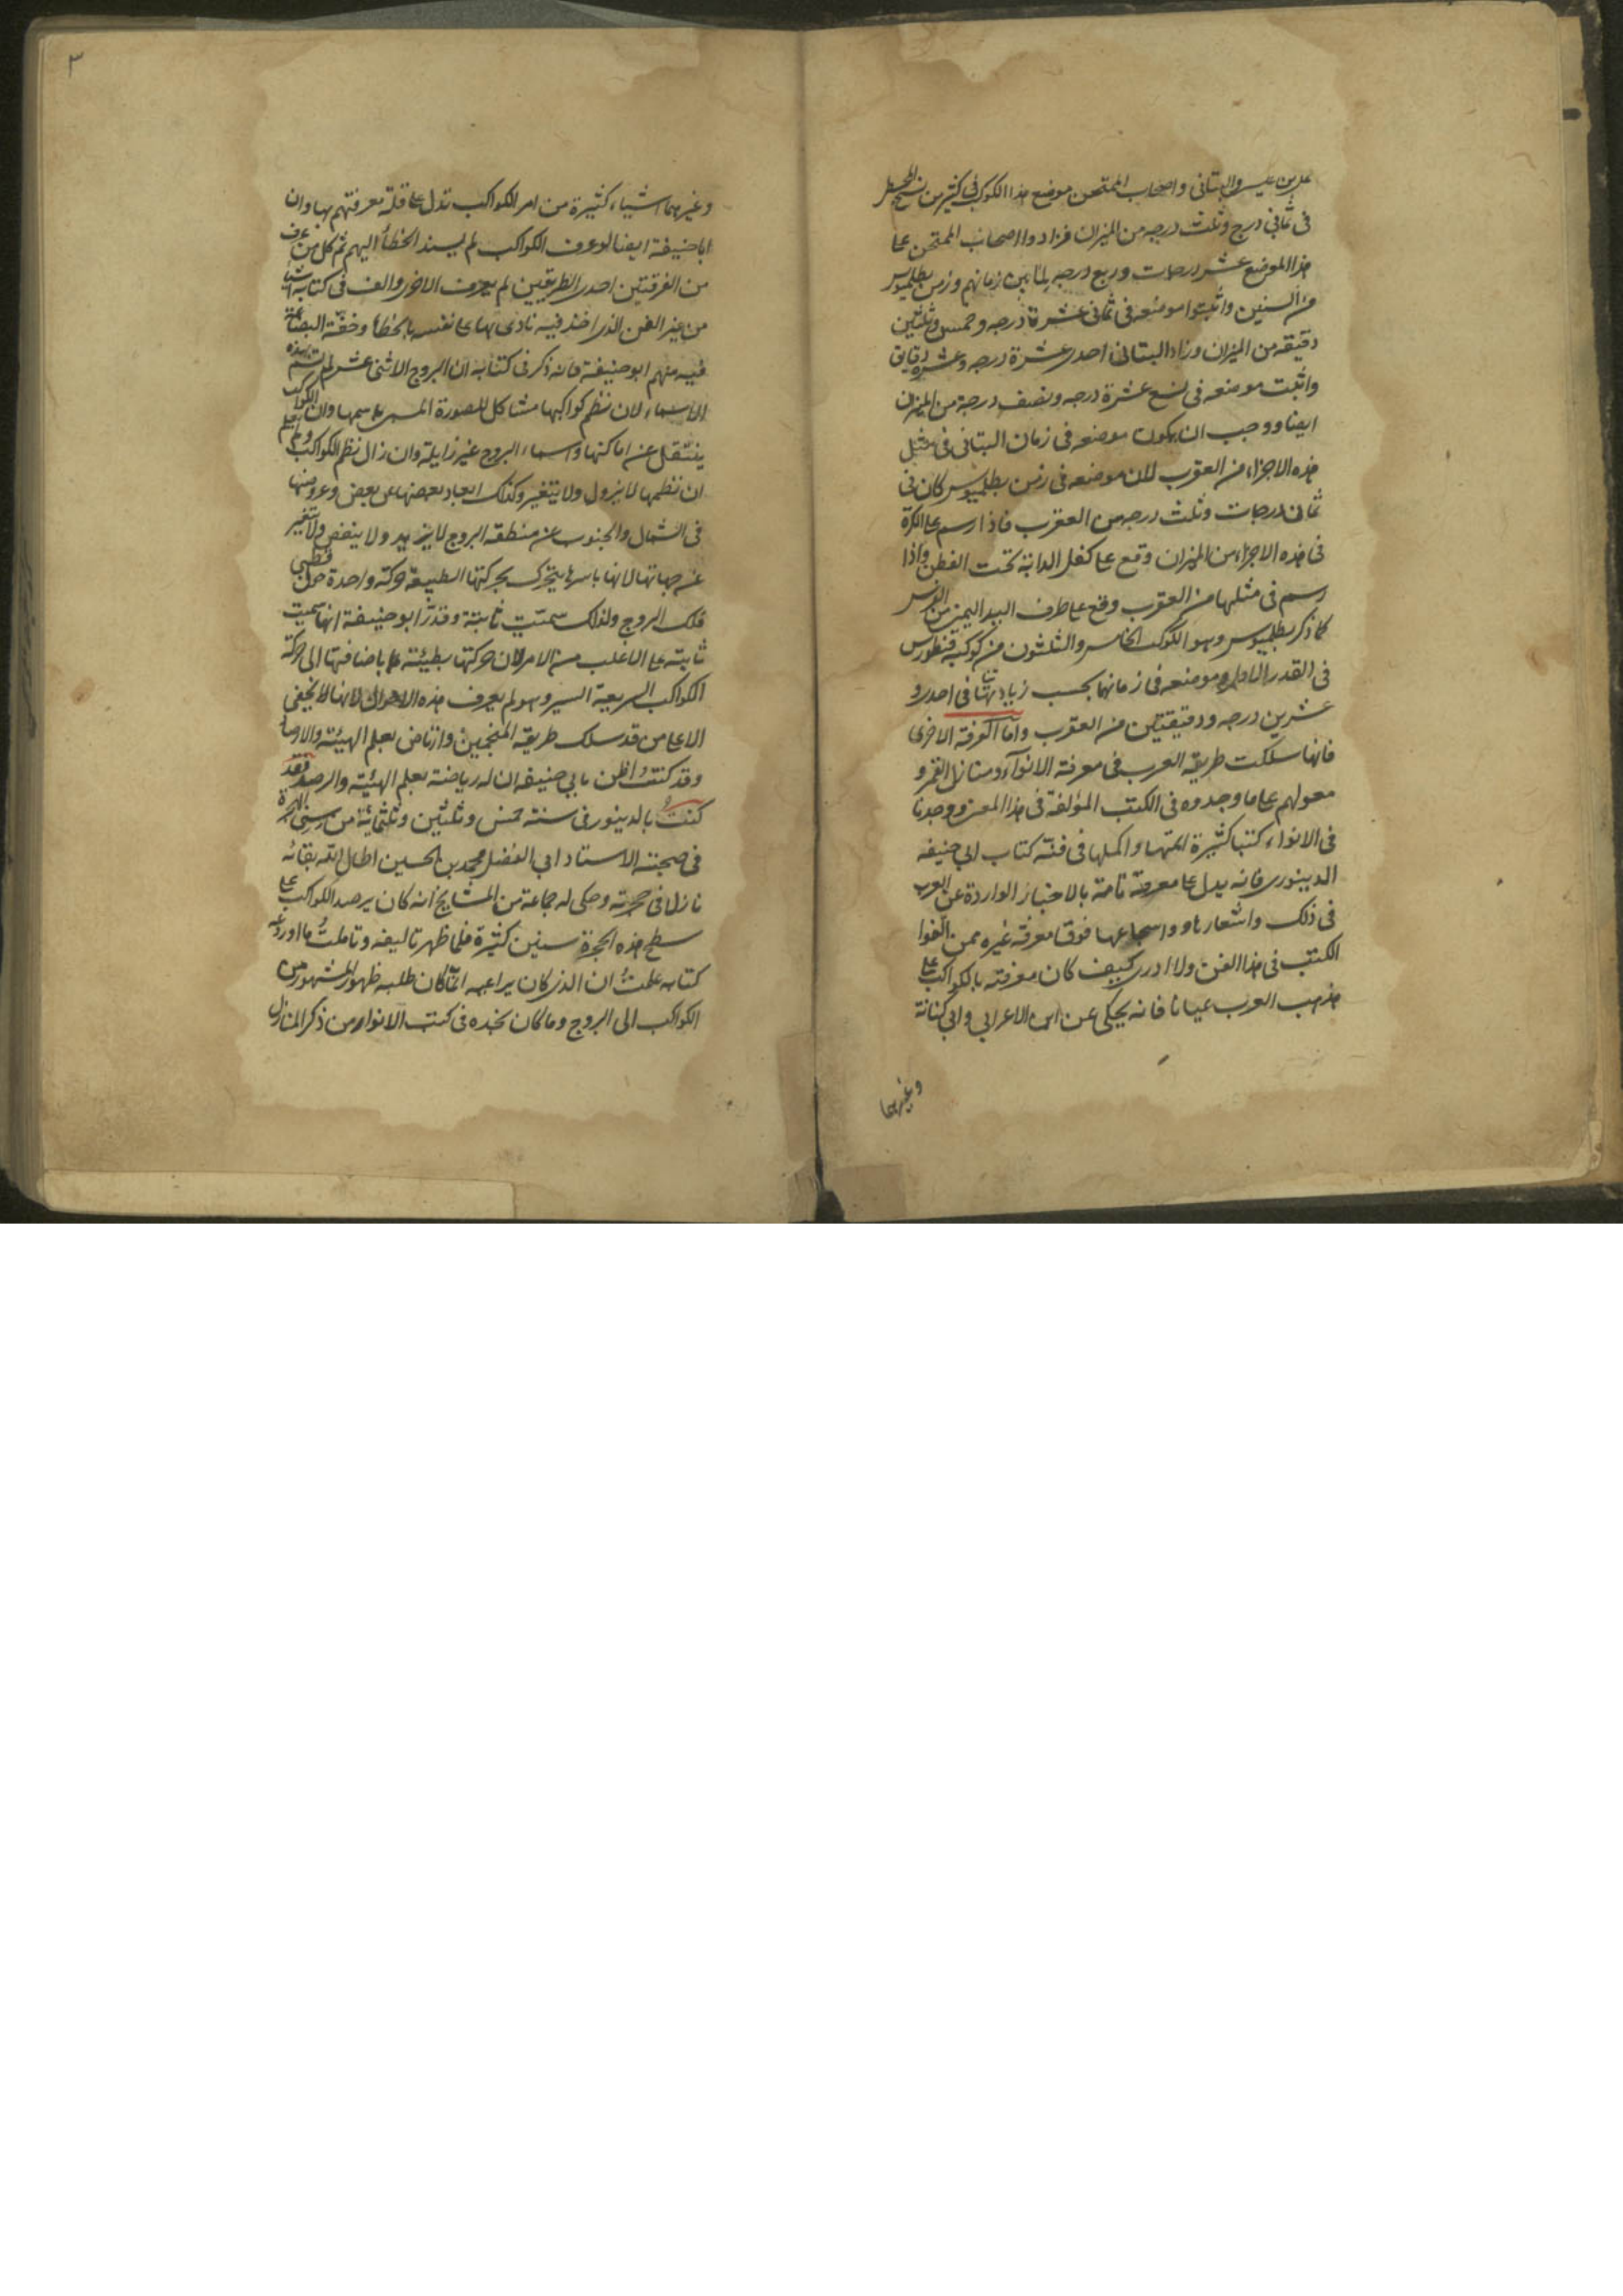 علي بن عيسى والبتاني واصحاب الممتحن موضع هذا الكوكب في كثير من نسخ المجسطي
في ثماني درج وثلث درجه من الميزان فزادوا اصحاب الممتحن على
هذا الموضع عشر درجات وربع درجه لما بين زمانهم وزمن بطلميوس
من السنين واثبتوا موضعه في ثماني عشرة درجه وخمس وثلثين
دقيقه من الميزان وزاد البتاني احدى عشرة درجه وعشرة دقايق
واثبت موضعه في تسع عشرة درجه ونصف درجة من الميزان
ايضا ووجب ان يكون موضعه في زمان البتاني في مثل
هذه الاجزاء من العقرب لان موضعه في زمن بطلميوس كان في
ثماني درجات وثلث درجه من العقرب فاذا رسم على الكرة
في هذه الاجزاء من الميزان وقع على كفل الدابة تحت القطن واذا
رسم في مثلها من العقرب وقع على طرف اليد اليمنى من الفرس
كما ذكر بطلميوس وهو الكوكب الخامس والثلثون من كوكبة قنطورس
في القدر الاول وموضعه في زماننا بحسب زياداتنا في احدى و
عشرين درجه ودقيقتين من العقرب وأما الفرقة الاخرى
فانها سلكت طريقة العرب في معرفة الانوآء ومنازل القمر و
معولهم على ما وجدوه في الكتب المؤلفة في هذا المعنى ووجدنا
في الانواء كتبا كثيرة اتمها واكملها في فنه كتاب ابي حنيفه
الدينوري فانه يدل على معرفة تامة بالاخبار الواردة عن العرب
في ذلك واشعارها واسجاعها فوق معرفة غيره ممن الّفوا
الكتب في هذا الفن ولا ادري كيف كان معرفته بالكواكب على
مذهب العرب عيانا فانه يحكى عن ابن الاعرابي وابي كنانة
وغيرهما
٣
وغيرهما اشياء كثيرة من امر الكواكب تدل على قلة معرفتهم بها وان
ابا حنيفة ايضا لو عرف الكواكب لم يسند الخطأ اليهم ثم كل من عرف
من الفرقتين احدى الطريقتين لم يعرف الاخرى والف في كتابه اشيا
من غير الفن الذي اخذ فيه نادى بها على نفسه بالخطأ وخفّة البضاعة
فيه منهم ابو حنيفة فانه ذكر في كتابه ان البروج الاثنى عشر لم تسم بهذه
الاسماء لان نظم كواكبها مشاكل للصورة المسمى باسمها وان الكواكب
ينتقل عن اماكنها واسماء البروج غير زايلة وان زال نظم الكواكب ولم يعلم
ان نظمها لا يزول ولا يتغير وكذلك ابعاد بعضها عن بعض وعروضها
في الشمال والجنوب عن منطقه البروج لا يزيد ولا ينقص ولا يتغير
عن جهاتها لانها باسرها يتحرك بحركتها الطبيعة حركه واحدة حول قطبي
فلك البروج ولذلك سميّت ثابتة وقدّر ابو حنيفة انها سميت
ثابته على الاغلب من الامر لان حركتها بطيئة باضافتها الى حركة
الكواكب السريعة السير وهو لم يعرف هذه الاحوال لانها لا تخفى
الا على من قد سلك طريقة المنجمين وارتاض بعلم الهيئة والارصاد
وقد كنت اظن بابي حنيفه ان له رياضة بعلم الهيئة والرصد فقد
كنتُ بالدينور في سنة خمس وثلثين وثلثمائة من سني الهجرة
في صحبة الاستاد ابي الفضل محمد بن الحسين اطال الله بقائه
نازلا في حجرته وحكى له جماعة من المشايخ انه كان يرصد الكواكب على
سطح هذه الحجرة سنين كثيرة فلما ظهر تاليفه وتاملتُ ما اودعه
كتابه علمتُ ان الذي كان يراعيه انما كان طلبه ظهور المشهور من
الكواكب الى البروج وما كان يجده في كتب الانواء من ذكر المنازل